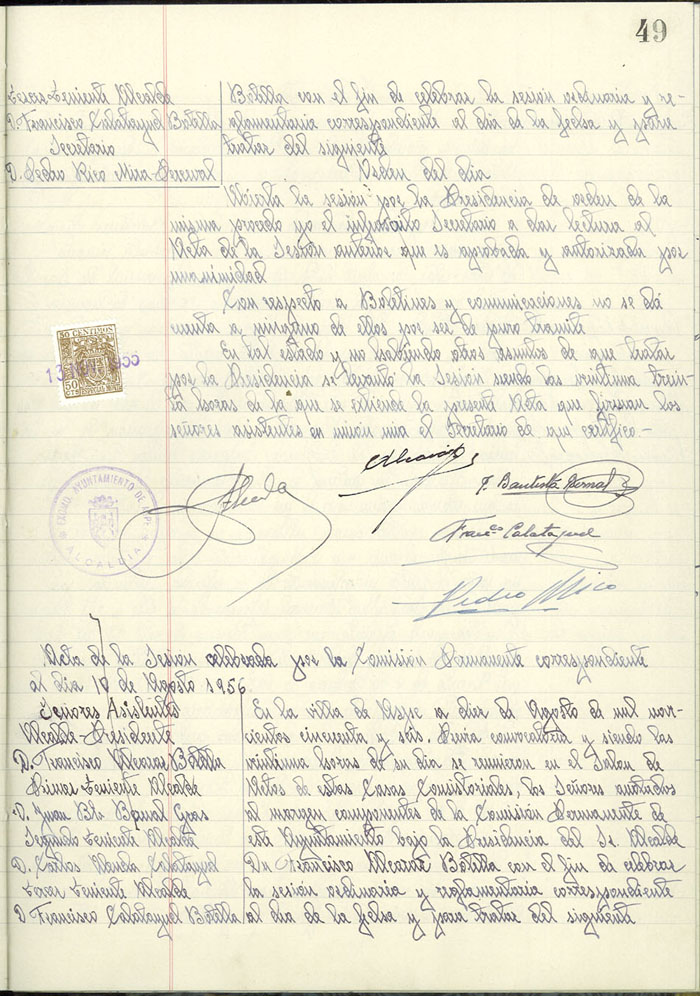 49
Tercer Teniente Alcalde
D. Francisco Calatayud Botella
Secretario
D. Pedro Rico Mira-Perceval
Botella con el fin de celebrar la sesión ordinaria y re-
glamentaria correspondiente al dia de la fecha y para
tratar del siguiente
Orden del dia
Abierta la sesión por la Presidencia de orden de la
misma procedo yo el infrascrito Secretario a dar lectura al
Acta de la Sesión anterior que es aprobada y autorizada por
unanimidad
Con respecto a Boletines y comunicaciones no se dá
cuenta a ninguno de ellos por ser de puro tramite
En tal estado y no habiendo otros asuntos de que tratar
por la Presidencia se levantó la Sesión siendo las veintiuna trein-
ta horas de la que se extiende la presente Acta que firman los
señores asistentes en unión mia el Secretario de que certifico.-
50 CENTIMOS
50
EXCMO. AYUNTAMIENTO DE ASPE
ALCALDIA
F. Bautista Bernal
Franco Calatayud
Pedro Rico
Acta de la Sesion celebrada por la Comisión Permanente correspondiente
al dia 10 de Agosto 1956
Señores Asistentes
Alcalde-Presidente
D. Francisco Alcaraz Botella
Primer Teniente Alcalde
D. Juan Bta Bernal
Segundo Teniente Alcalde
D. Carlos Calatayud
Tercer Teniente Alcalde
D Francisco Calatayud Botella
En la villa de Aspe a diez de Agosto de mil nove-
cientos cincuenta y seis. Previa convocatoria y siendo las
veintiuna horas de su dia se reunieron en el Salon de
Actos de estas Casas Consistoriales, los Señores anotados
al margen componentes de la Comisión Permanente de
este Ayuntamiento bajo la Presidencia del Sr. Alcalde
Dn Francisco Alcaraz Botella con el fin de celebrar
la sesión ordinaria y reglamentaria correspondiente
al dia de la fecha y para tratar del siguiente